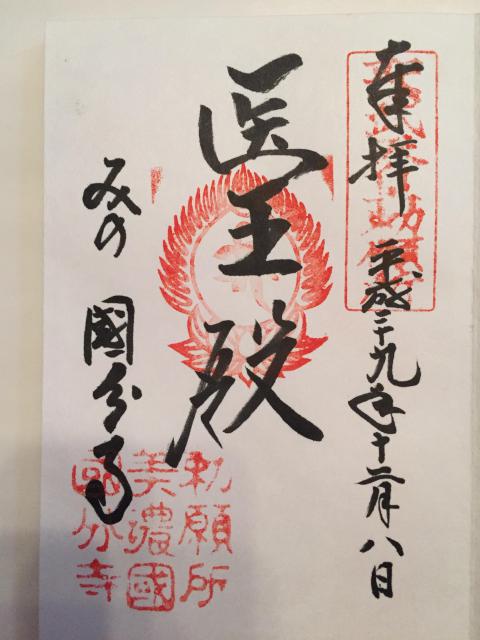 奉拝 平成二十九年十二月八日
医王殿
みの 國分寺
勅願所
美濃國
國分寺